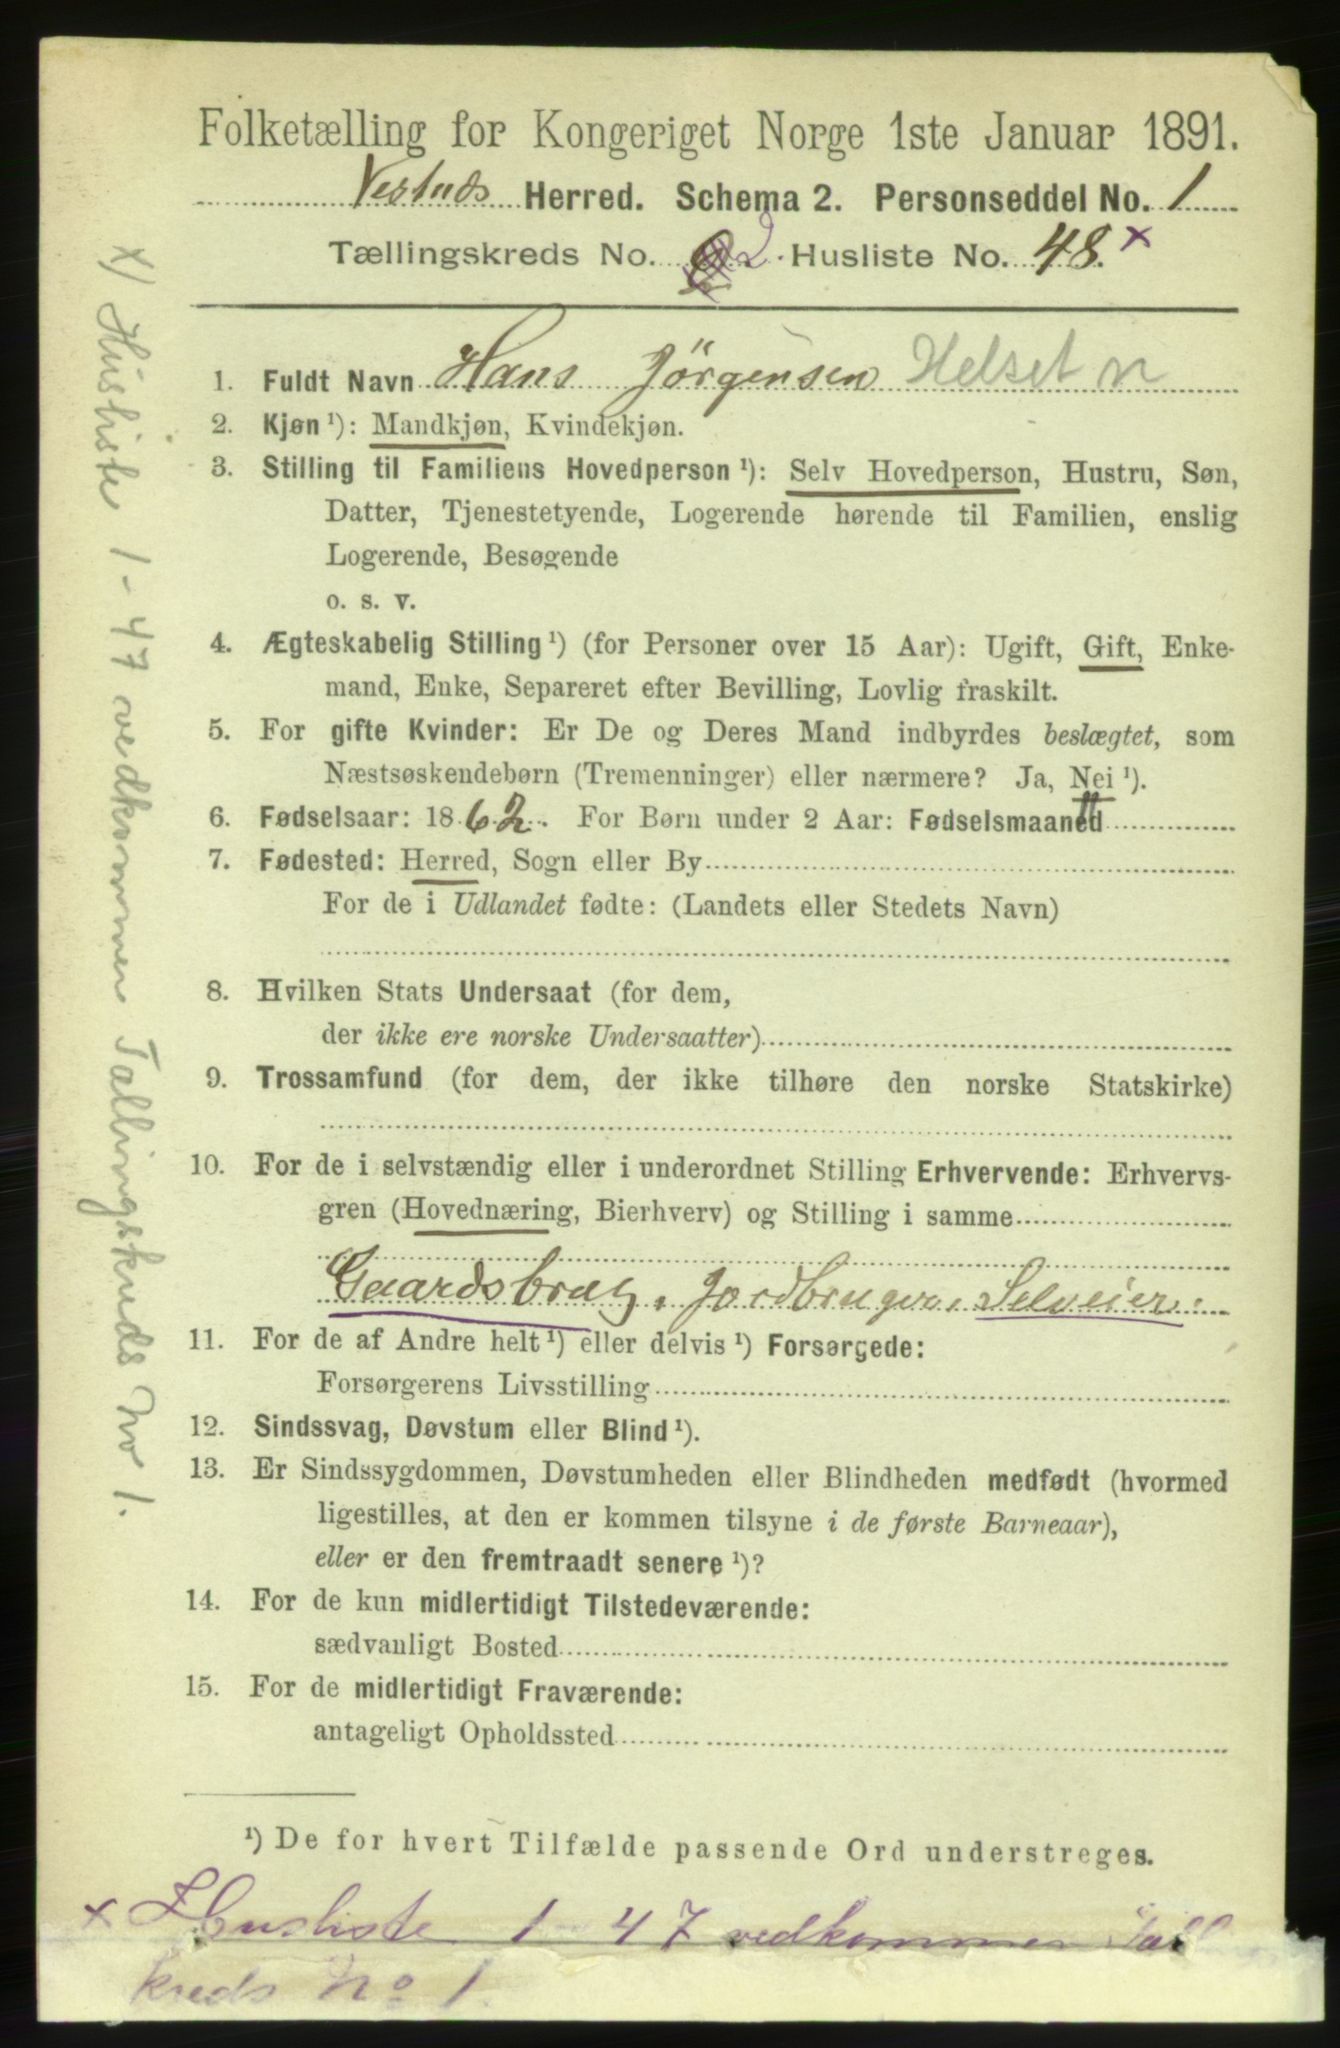 Folketælling for Kongeriget Norge 1ste Januar 1891.
Vestnds Herred. Schema 2. Personseddel No. 1
Tællingskreds No. 2. Husliste No. 48. x
1. Fuldt Navn Hans Jörgensen Helset n
2. Kjøn ¹): Mandkjøn, Kvindekjøn.
3. Stilling til Familiens Hovedperson ¹): Selv Hovedperson, Hustru, Søn,
Datter, Tjenestetyende, Logerende hørende til Familien, enslig
Logerende, Besøgende
o. s. v.
4. Ægteskabelig Stilling ¹) (for Personer over 15 Aar): Ugift, Gift, Enke-
mand, Enke, Separeret efter Bevilling, Lovlig fraskilt.
5. For gifte Kvinder: Er De og Deres Mand indbyrdes beslægtet, som
Næstsøskendebørn (Tremenninger) eller nærmere? Ja, Nei ¹).
6. Fødselsaar: 1862. For Børn under 2 Aar: Fødselsmaaned
7. Fødested: Herred, Sogn eller By
For de i Udlandet fødte: (Landets eller Stedets Navn)
8. Hvilken Stats Undersaat (for dem,
der ikke ere norske Undersaatter)
9. Trossamfund (for dem, der ikke tilhøre den norske Statskirke)
10. For de i selvstændig eller i underordnet Stilling Erhvervende: Erhvervs-
gren (Hovednæring, Bierhverv) og Stilling i samme
Gaardsbrug, Jordbruger, Selveier.
11. For de af Andre helt ¹) eller delvis ¹) Forsørgede:
Forsørgerens Livsstilling
12. Sindssvag, Døvstum eller Blind ¹).
13. Er Sindssygdommen, Døvstumheden eller Blindheden medfødt (hvormed
ligestilles, at den er kommen tilsyne i de første Barneaar),
eller er den fremtraadt senere ¹)?
14. For de kun midlertidigt Tilstedeværende:
sædvanligt Bosted
15. For de midlertidigt Fraværende:
antageligt Opholdssted
¹) De for hvert Tilfælde passende Ord understreges.
x Husliste 1-47 vedkommer
kreds No 1.
x) Husliste 1-47 vedkommer Tællingskreds No 1.